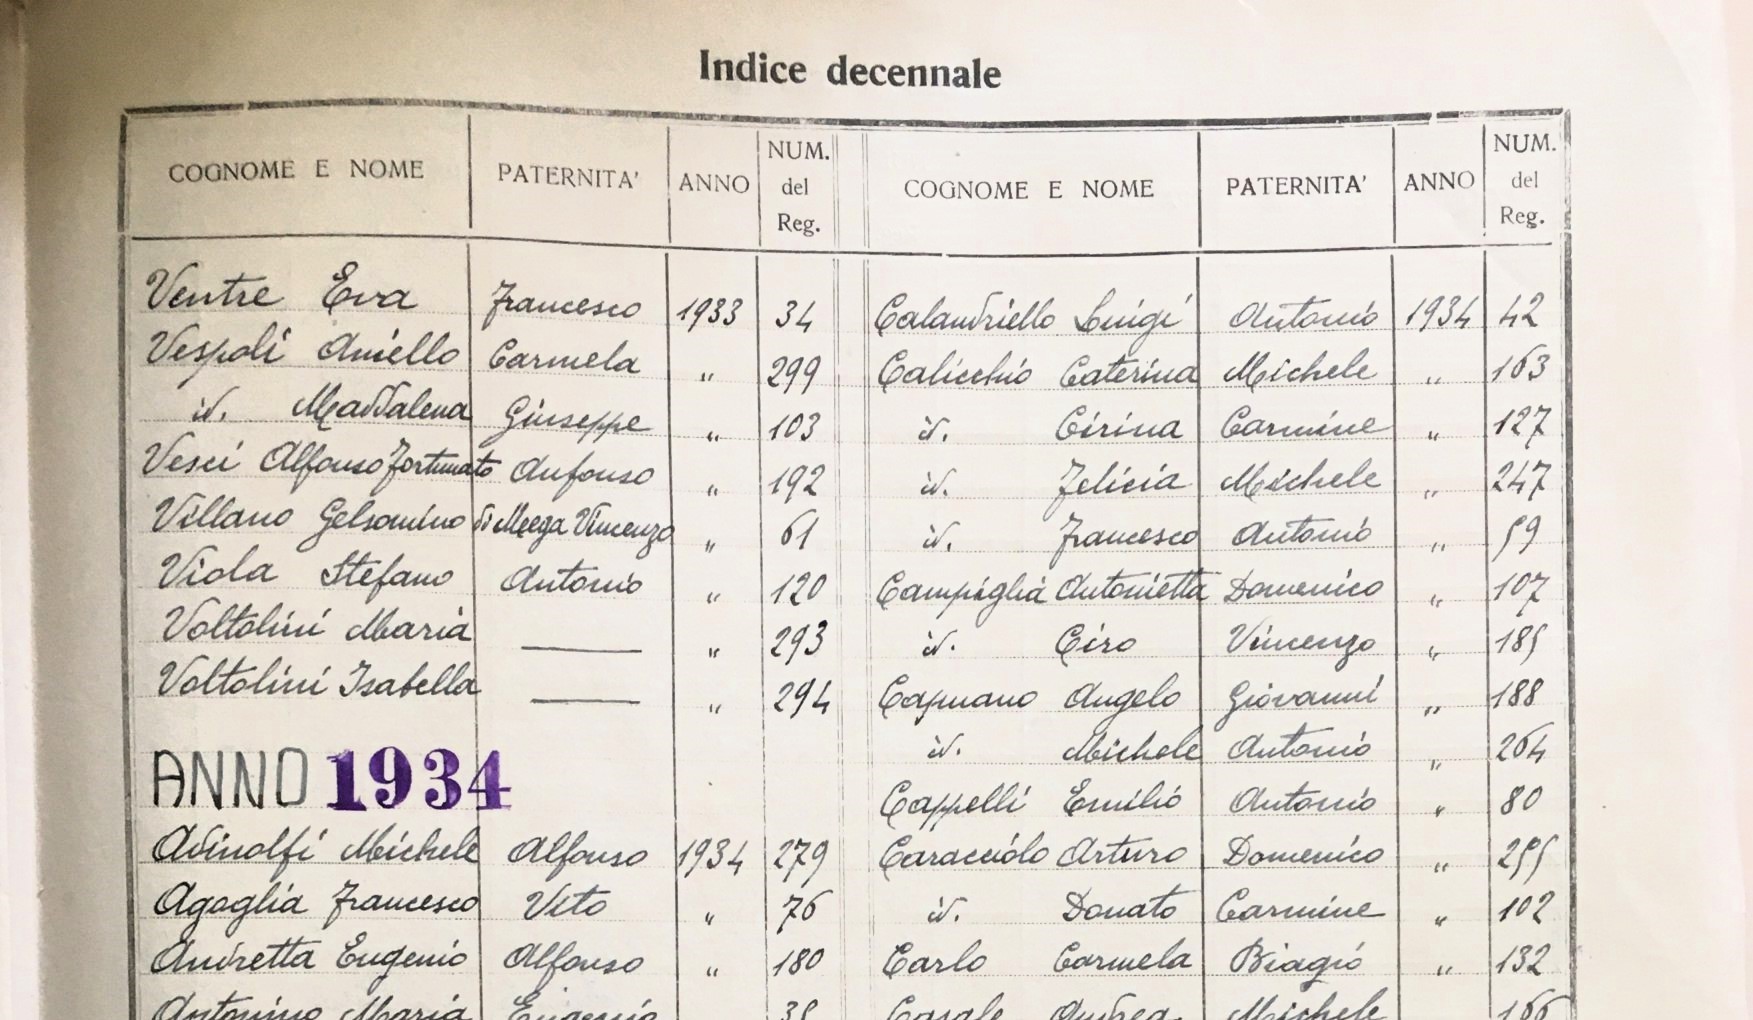 Indice decennale
COGNOME E NOME PATERNITA' ANNO NUM. del Reg.
Ventre Eva Francesco 1933 34
Vespoli Aniello Carmela " 299
id. Maddalena Giuseppe " 103
Vesci Alfonso Fortunato Anfonso " 192
Villano Gelsomino di Vincenzo " 61
Viola Stefano Antonio " 120
Voltolini Maria — " 293
Voltolini Isabella — " 294
ANNO 1934
Adinolfi Michele Alfonso 1934 279
Agoglia Francesco Vito " 76
Andretta Eugenio Alfonso " 180
Antonino Maria Eugenio 35
COGNOME E NOME PATERNITA' ANNO NUM. del Reg.
Calandriello Luigi Antonio 1934 42
Calicchio Caterina Michele " 163
id. Cirina Carmine " 127
id. Felicia Michele " 247
id. Francesco Antonio " 59
Campiglia Antonietta Domenico " 107
id. Ciro Vincenzo " 185
Capuano Angelo Giovanni " 188
id. Michele Antonio " 264
Cappelli Emilio Antonio " 80
Caracciolo Arturo Domenico " 255
id. Donato Carmine " 102
Carlo Carmela Biagio " 132
Casale Andrea Michele 166